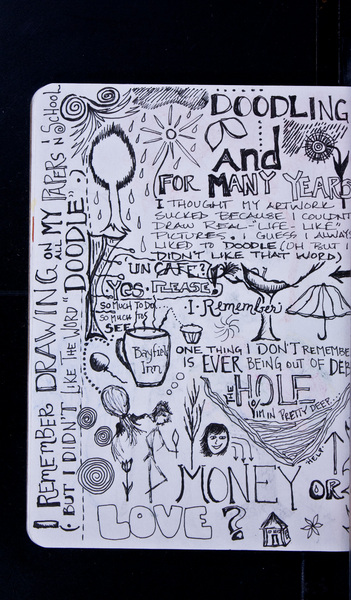 I REMEMBER DRAWING ON ALL MY PAPERS iN SCHOOL
(· BUT I DIDN'T LIKE THE WORD "DOODLE" · )
DOODLING
And
FOR MANY YEARS
I THOUGHT MY ARTWORK
SUCKED BECAUSE I COULDNT
DRAW REAL-LIFE-LIKE
PICTURES. I GUESS I ALWAYS
LIKED TO DOODLE (OH BUT I
DIDN'T LIKE THAT WORD)
UN CAFE?
YES. PLEASE!
SO MUCH TO DO
SO MUCH TO
SEE
·I·Remember
Bayfield
Inn
ONE THING I DON'T REMEMBER
IS EVER BEING OUT OF DEB
THE HOLE
I'M IN PRETTY DEEP
HELP
MONEY OR
LOVE?